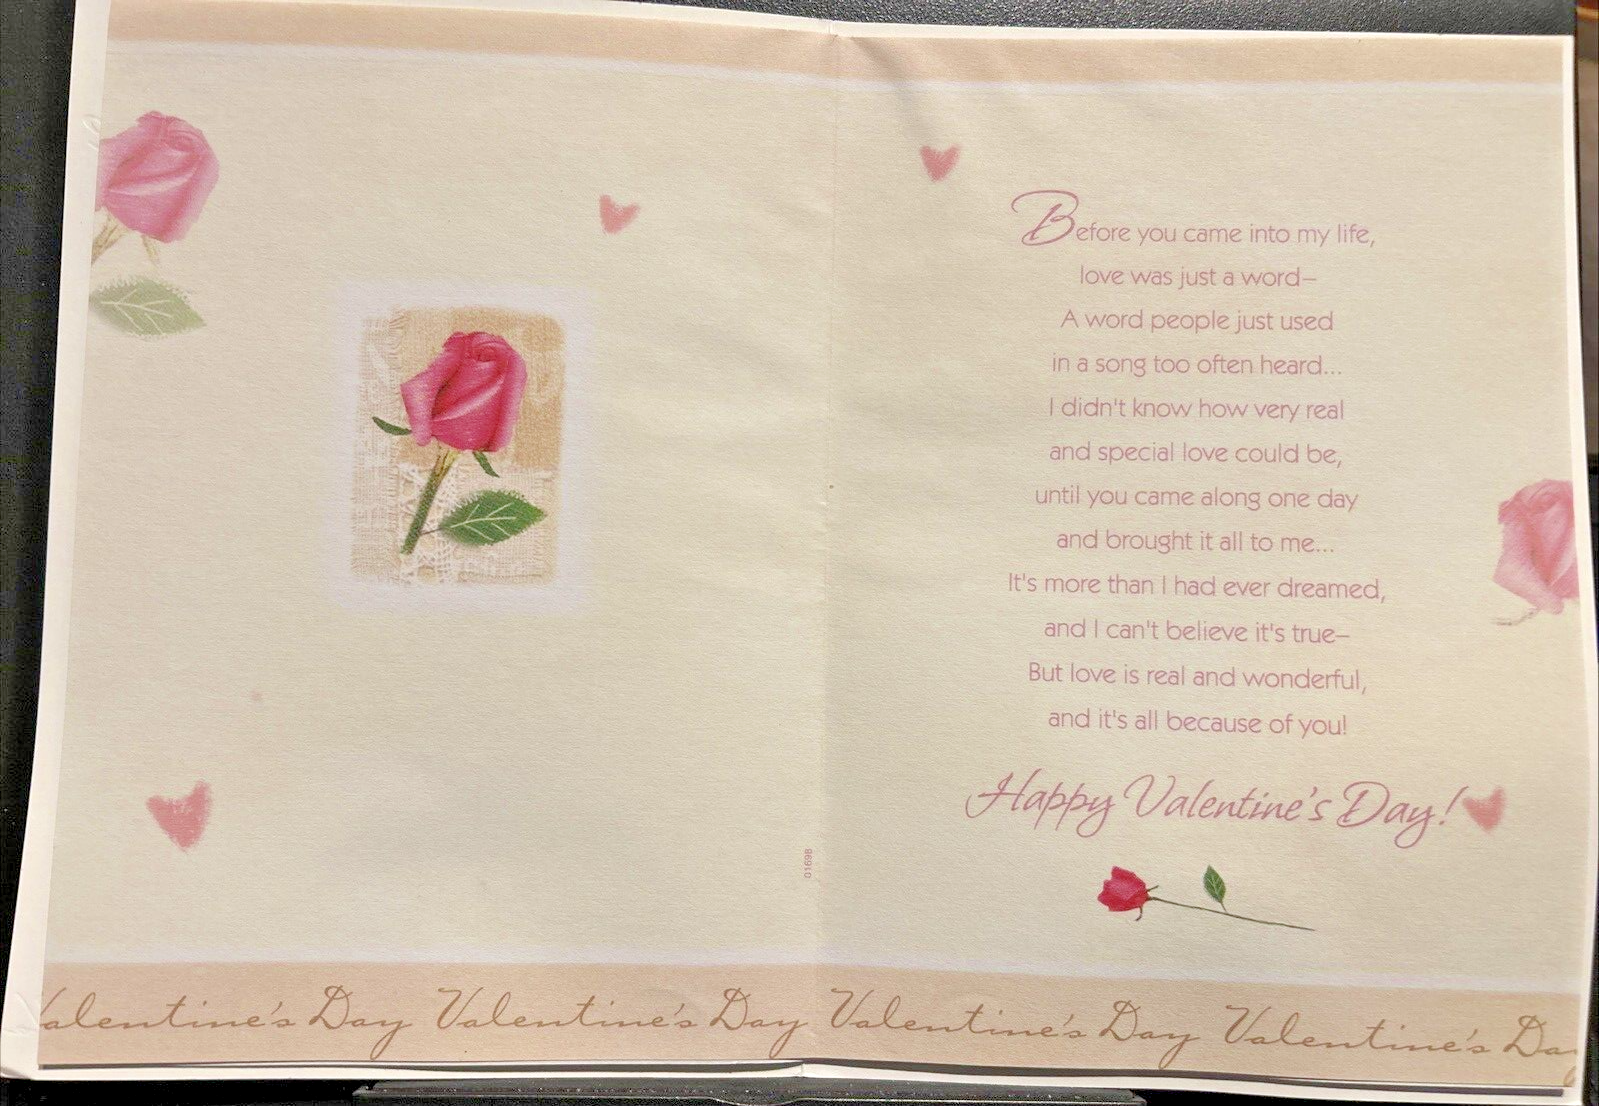 Before you came into my life,
love was just a word–
A word people just used
in a song too often heard...
I didn't know how very real
and special love could be,
until you came along one day
and brought it all to me...
It's more than I had ever dreamed,
and I can't believe it's true–
But love is real and wonderful,
and it's all because of you!
Happy Valentine's Day!
01698
Valentine's Day Valentine's Day Valentine's Day Valentine's Da